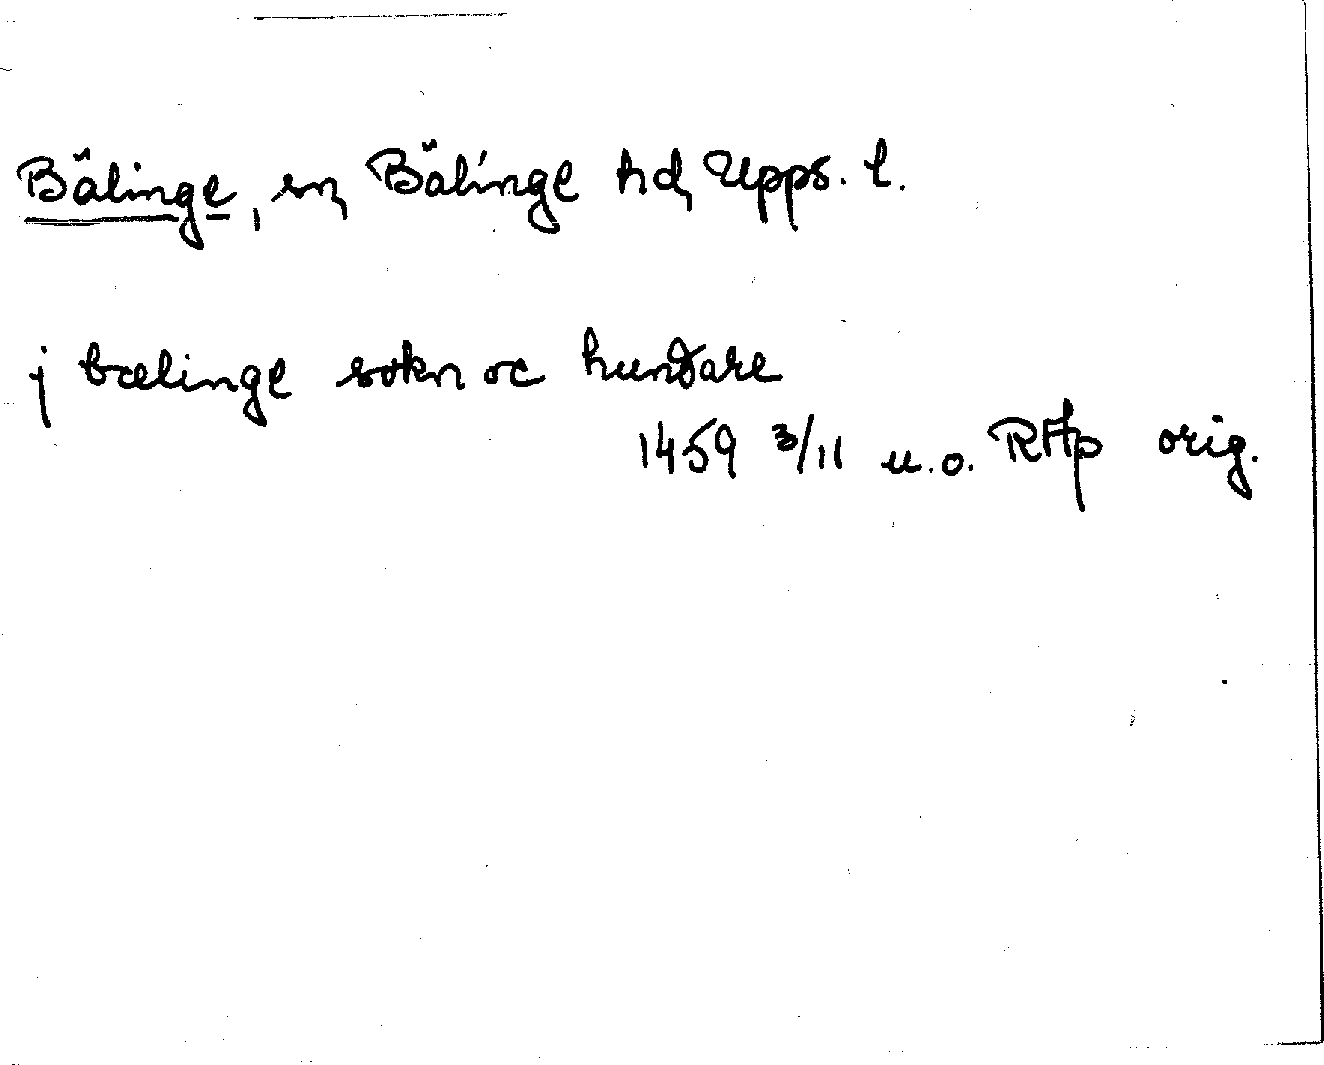 Bälinge, sn, Bälinge hd, Upps. l.
j bælinge sokn oc hundare
1459 3/11 u.o. RAp orig.